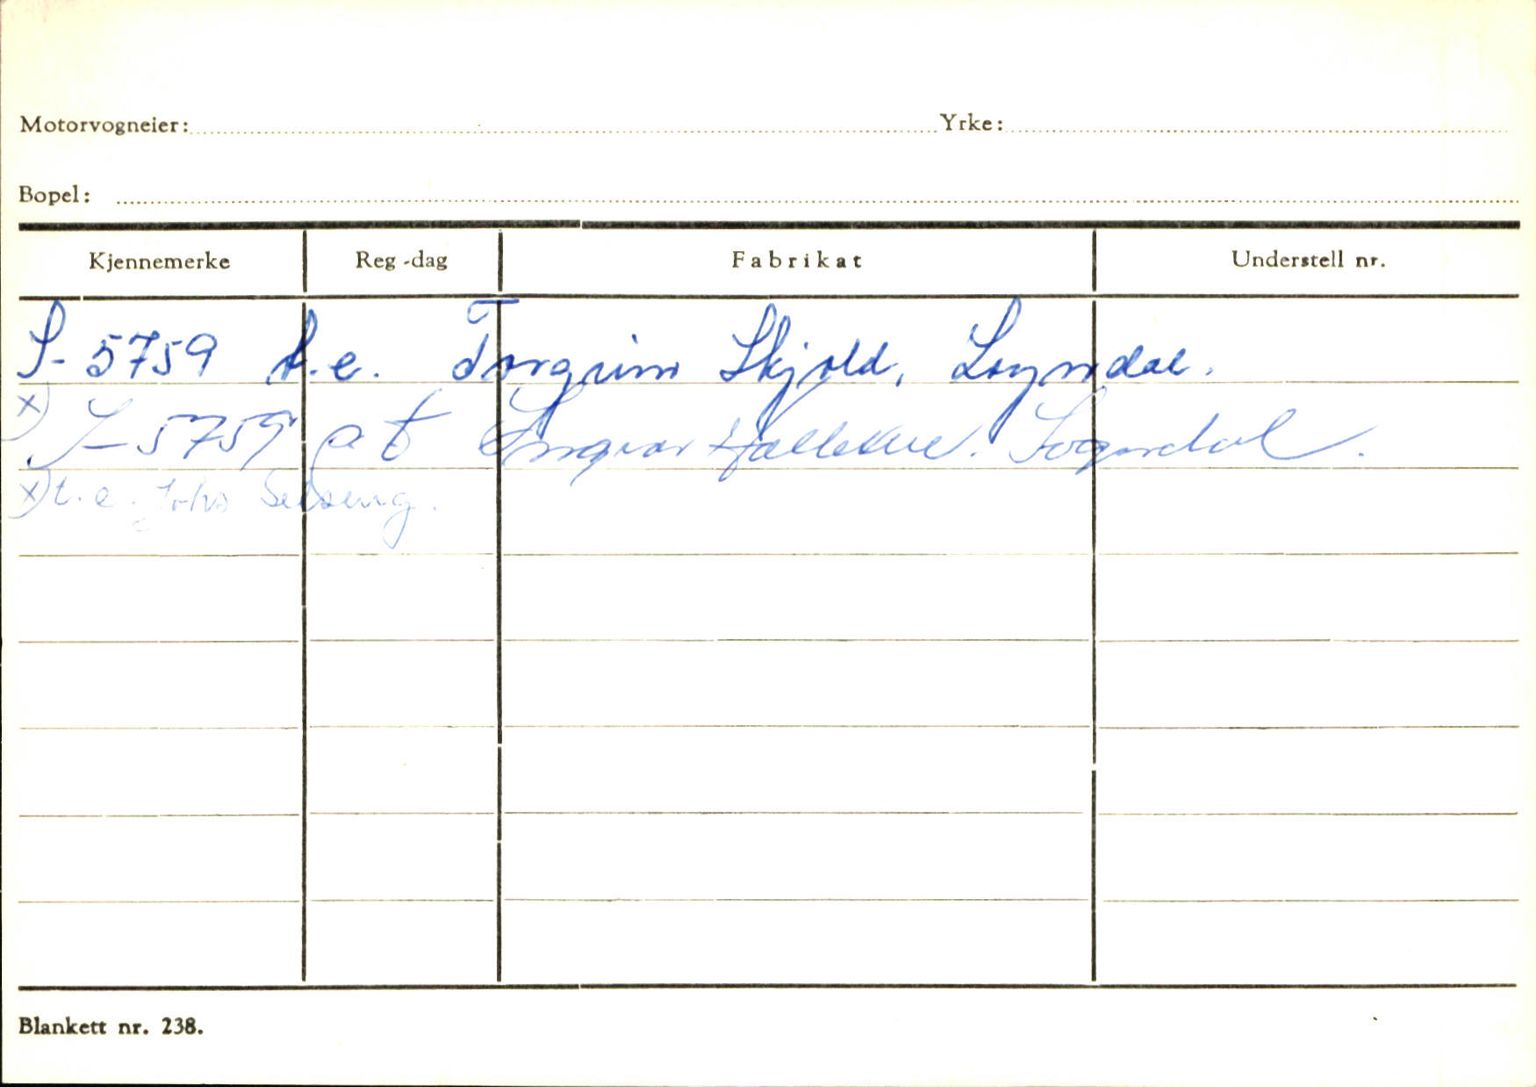 Motorvogneier: Yrke:
Bopel:
Kjennemerke Reg-dag Fabrikat Understell nr.
S-5759 t.e. Torgrim Skjold,
x) S-5759 at Ingvar Sogndal.
x) t.e. Selseng.
Blankett nr. 238.